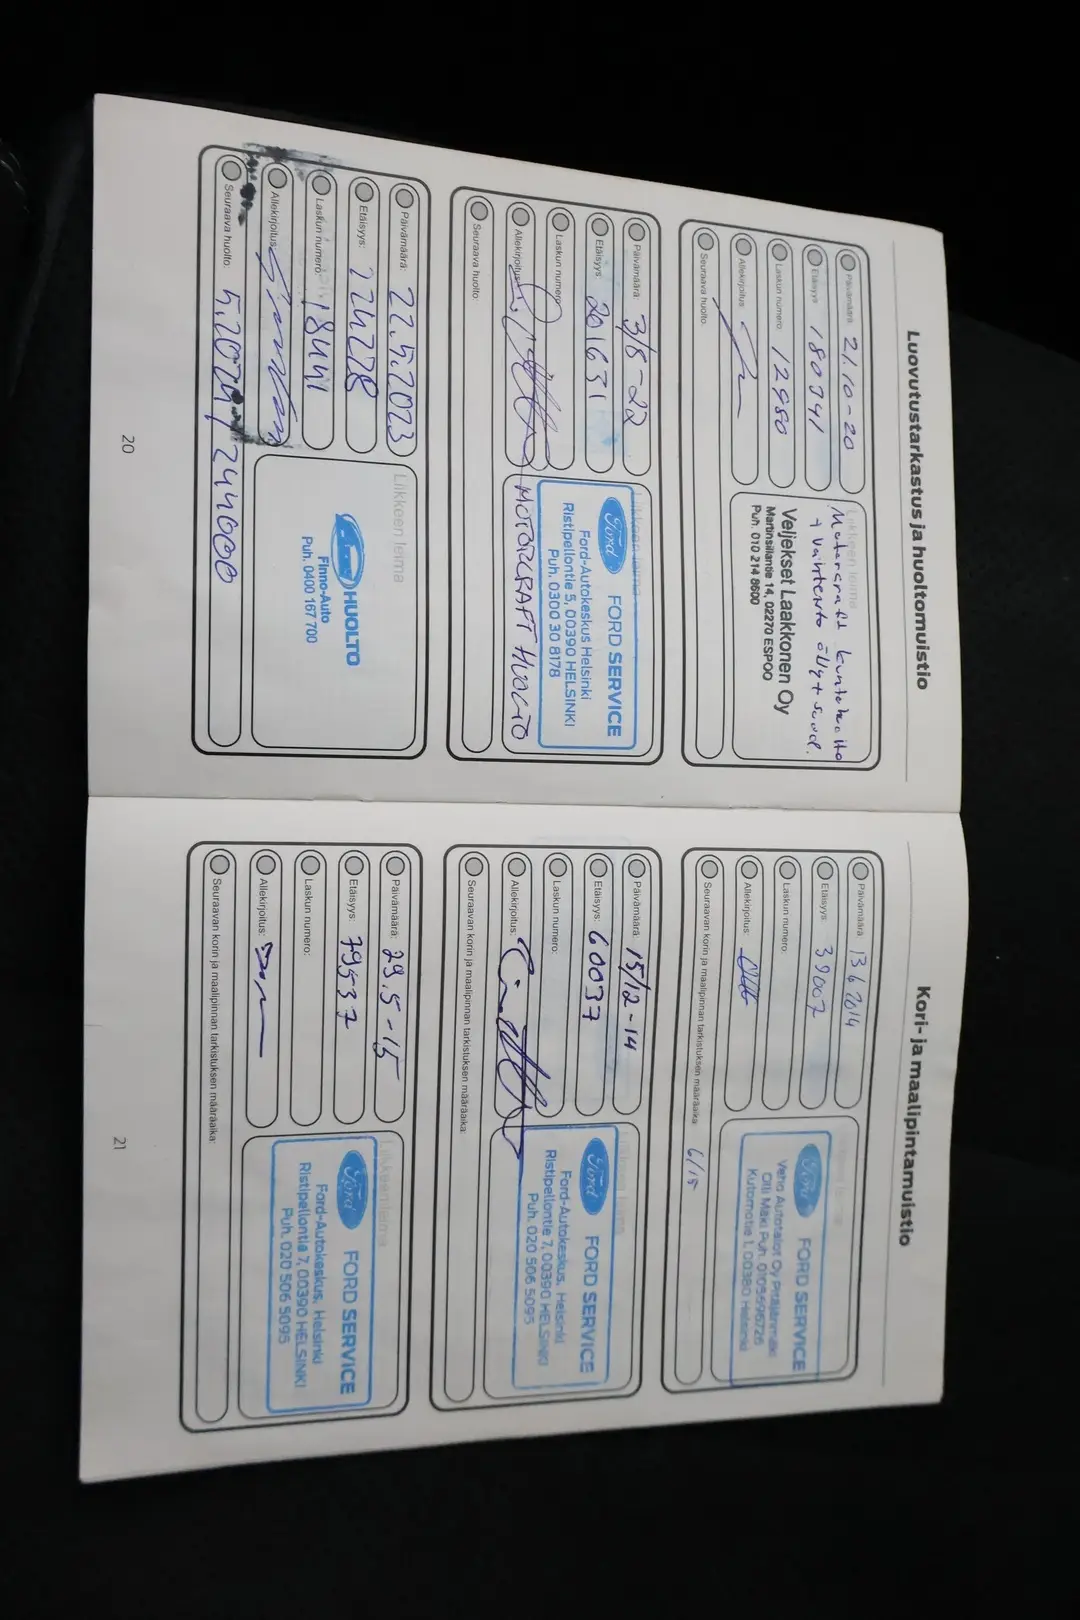 Luovutustarkastus ja huoltomuistio
Päivämäärä: 21.10-20
Etäisyys: 180341
Laskun numero: 12980
Allekirjoitus:
Seuraava huolto:
Liikkeen leima
Motorcraft kuntohuolto
+ vaihteisto öljyt + suod.
Veljekset Laakkonen Oy
Martinsillantie 14, 02270 ESPOO
Puh. 010 214 8600
Päivämäärä: 3/8-22
Etäisyys: 201631
Laskun numero:
Allekirjoitus:
Seuraava huolto:
Liikkeen leima
Ford FORD SERVICE
Ford-Autokeskus Helsinki
Ristipellontie 5, 00390 HELSINKI
Puh. 0300 30 8178
MOTORCRAFT HUOLTO
Päivämäärä: 22.5.2023
Etäisyys: 224228
Laskun numero: 18441
Allekirjoitus:
Seuraava huolto: 5.2024 / 244000
Liikkeen leima
HUOLTO
Finno-Auto
Puh. 0400 167 700
20
Kori- ja maalipintamuistio
Päivämäärä: 13.6.2014
Etäisyys: 39007
Laskun numero:
Allekirjoitus:
Seuraavan korin ja maalipinnan tarkistuksen määräaika: 6/15
Ford FORD SERVICE
Veho Autotalot Oy Pitäjänmäki
Olli Mäki Puh. 0105696726
Kutomotie 1, 00380 Helsinki
Päivämäärä: 15/12-14
Etäisyys: 60037
Laskun numero:
Allekirjoitus:
Seuraavan korin ja maalipinnan tarkistuksen määräaika:
Liikkeen leima
Ford FORD SERVICE
Ford-Autokeskus, Helsinki
Ristipellontie 7, 00390 HELSINKI
Puh. 020 506 5095
Päivämäärä: 29.5-15
Etäisyys: 79537
Laskun numero:
Allekirjoitus:
Seuraavan korin ja maalipinnan tarkistuksen määräaika:
Liikkeen leima
Ford FORD SERVICE
Ford-Autokeskus, Helsinki
Ristipellontie 7, 00390 HELSINKI
Puh. 020 506 5095
21